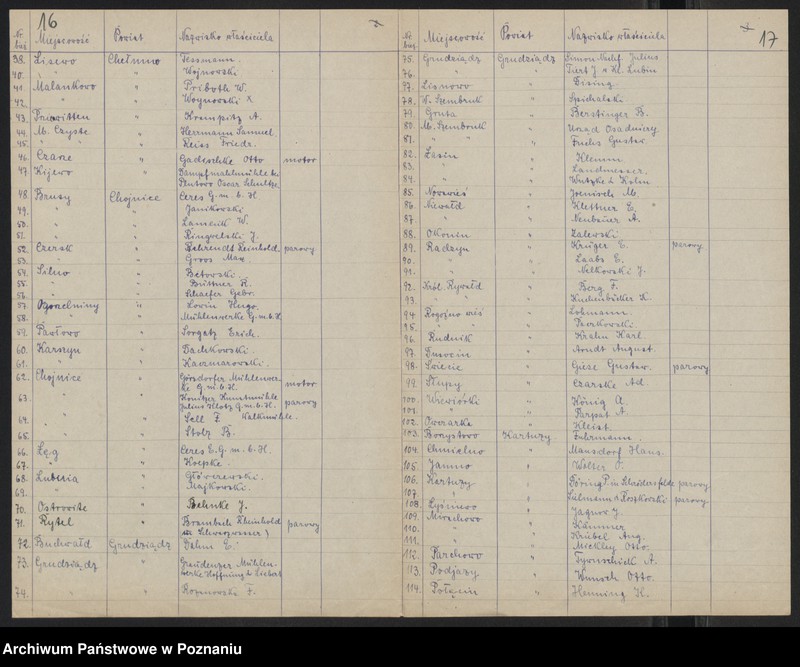 16
Nr bież. Miejscowość Powiat Nazwisko właściciela
38. Lisewo Chełmno Tessmann.
40. " " Wojnowski
41. Malankowo " Priboth W.
42. " " Woynowski X
43. " Krempitz A.
44. M. Czyste " Herrmann Samuel
45. " " Reiss Friedr.
46. Czarze " Gadischke Otto motor
47. Kijewo " Dampfmahlmühle
Oscar Schultze
48. Brusy Chojnice Ceres G.m.b.H
49. " " Janikowski
50. " " W.
51. " " J.
52. Czersk " Behrendt Reinhold parowy
53. " " Groos Max
54. Silno "
55. " " Büttner R.
56. " " Schaefer Gebr.
57. " Lewin Hugo.
58. " " Mühlenwerke G.m.b.H
59. Pawłowo " Sorgatz
60. Karszyn "
61. " " Kaczmarowski.
62. Chojnice " Görsdorfer Mühlenwer-
ke G.m.b.H. motor
63. " Konitzer Kunstmühle
Julius Klotz G.m.b.H. parowy
64. " " Sell F. Walkmühle.
65. " " Stolz B.
66. Łąg " Ceres E.G.m.b.H.
67. " " Koepke.
68. Lubnia " Główczewski.
69. " " Majkowski.
70. Ostrowite " Behnke J.
71. Rytel " Brambach Rheinhold parowy
(zu Schwarzwasser)
72. Buchwałd Grudziądz Dahm E.
73. Grudziądz " Graudenzer Mühlen-
werke Hoffnung &
74. " " F.
17
Nr bież. Miejscowość Powiat Nazwisko właściciela
75. Grudziądz Grudziądz Julius
76. " " J. & Lubin
77. Lisnowo "
78. W. Szembruk "
79. Gruta " Berstinger B.
80. M. Szembruk " Urząd Osadniczy
81. " " Fuchs Gustav
82. Łasin " Klemm
83. " " Landmesser.
84. " " & Kohn
85. Nowawieś " M.
86. Nicwałd " Klettner E.
87. " " Neubauer A.
88. Okonin " Zalewski
89. Radzyn " Krüger E. parowy
90. " " Laabs E.
91. " " Nelkowski J.
92. Król. Rywałd " Berg F.
93. " " Kuchenbäcker K.
94. Rogoźno wieś " Lohmann.
95. " "
96. Rudnik " Krahn Karl.
97. " Arndt August.
98. Świecie " Giese Gustaw. parowy
99. Słupy " Czarske Ad.
100. Wiewiórki " König A.
101. " " Parpat A.
102. Owczarki " Kleist.
103. Borzystowo Kartuzy Fuhrmann.
104. Chmielno " Mansdorf Hans.
105. Jamno " Wolter J.
106. Kartuzy " parowy
107. " " & Koszkowski parowy
108. Łyśniewo " Jagnow J.
109. Mirachowo " Kämmer
110. " " Krübel Aug.
111. " " Mickley Otto.
112. Parchowo " A.
113. Podjazy " Wunsch Otto.
114. Potęcin " Henning K.
Archiwum Państwowe w Poznaniu